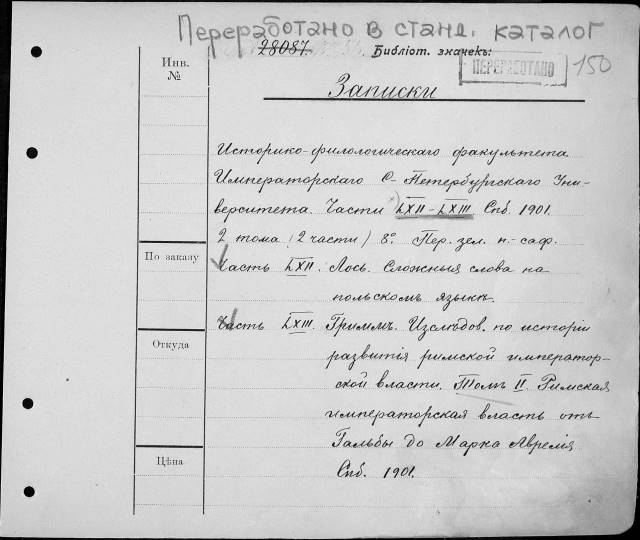 Переработано в станд. каталог
28087. Библіот. значекъ:
Инв.
№
ПЕРЕРАБОТАНО
150
Записки
Историко-филологическаго факультета
Императорскаго С-Петербургскаго Уни-
верситета. Части LXII-LXIII Спб. 1901.
2 тома (2 части) 8º. Пер. зел. п.-саф.
По заказу
Часть LXII. Лось. Сложныя слова на
польскомъ языкѣ.
Часть LXIII. Гриммъ. Изслѣдов. по исторіи
Откуда
развитія римской император-
ской власти. Томъ II. Римская
императорская власть отъ
Гальбы до Марка Аврелія
Цѣна
Спб. 1901.